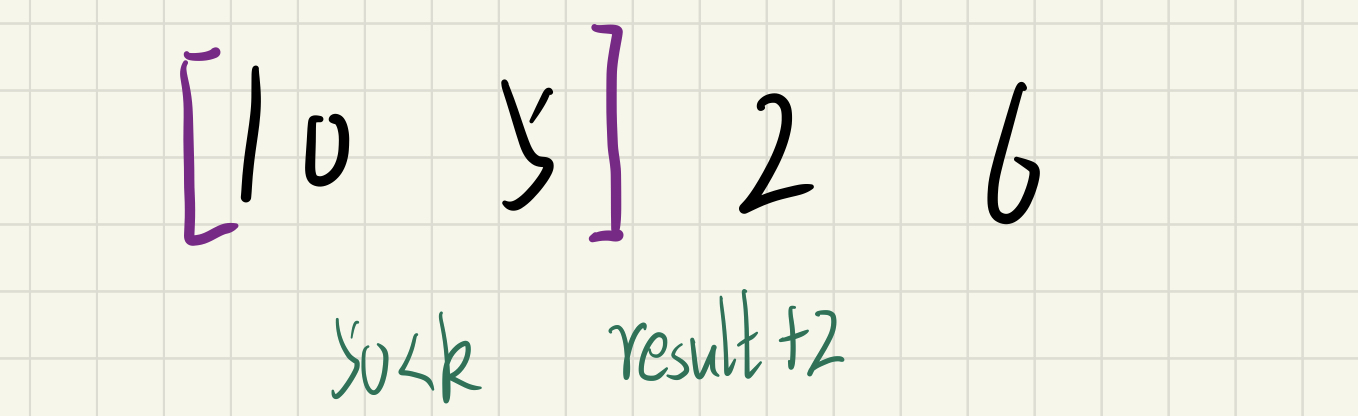 [10 5] 2 6
50<k result+2